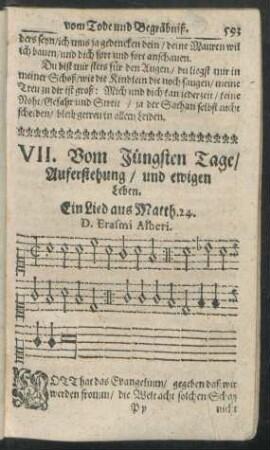 vom Tode und Begräbniß. 593
ders seyn/ich mus ja gedencken dein/deine Mauren wil
ich bauen/und dich fort und fort anschauen.
Du bist mir stets für den Augen/du liegst mir in
meiner Schoß/wie die Kindlein die noch saugen/meine
Treu zu dir ist groß: Mich und dich kan jederzeit/keine
Noht/Gefahr und Streit/ja der Sathan selbst nicht
scheiden/bleib getreu in allem Leiden.
VII. Vom Jüngsten Tage/
Auferstehung/und ewigen
Leben.
Ein Lied aus Matth. 24.
D. Erasmi Alberi.
GOTT hat das Evangelium/ gegeben daß wir
werden fromm/ die Welt acht solchen Schatz
P p nicht